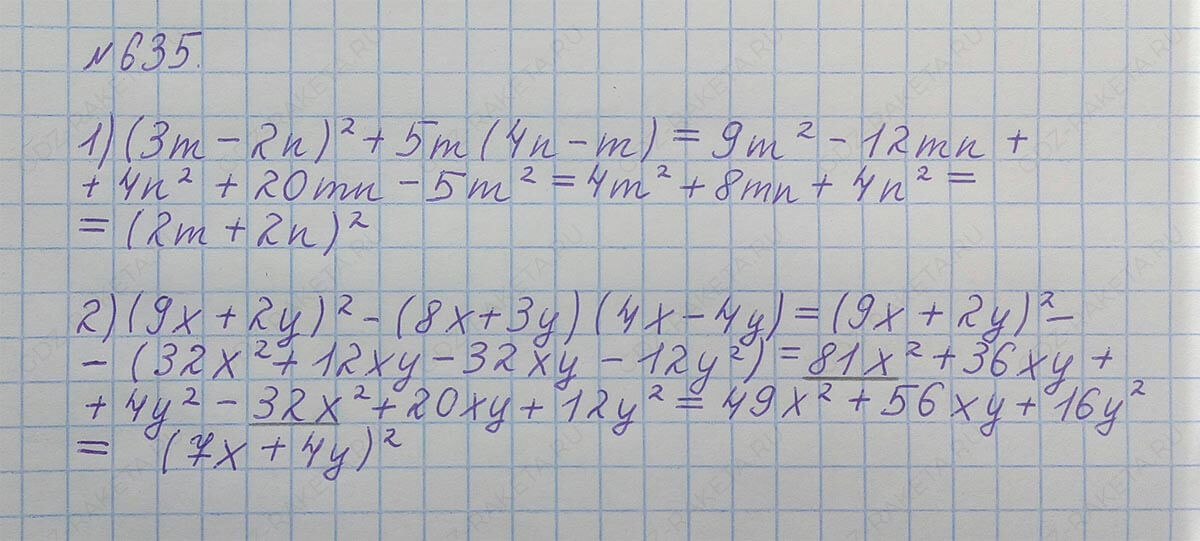 №635.
1) (3m - 2n)² + 5m (4n - m) = 9m² - 12mn +
+ 4n² + 20mn - 5m² = 4m² + 8mn + 4n² =
= (2m + 2n)²
2) (9x + 2y)² - (8x + 3y) (4x - 4y) = (9x + 2y)² -
- (32x² + 12xy - 32xy - 12y²) = 81x² + 36xy +
+ 4y² - 32x² + 20xy + 12y² = 49x² + 56xy + 16y²
= (7x + 4y)²
GDZ-RAKETA.RU